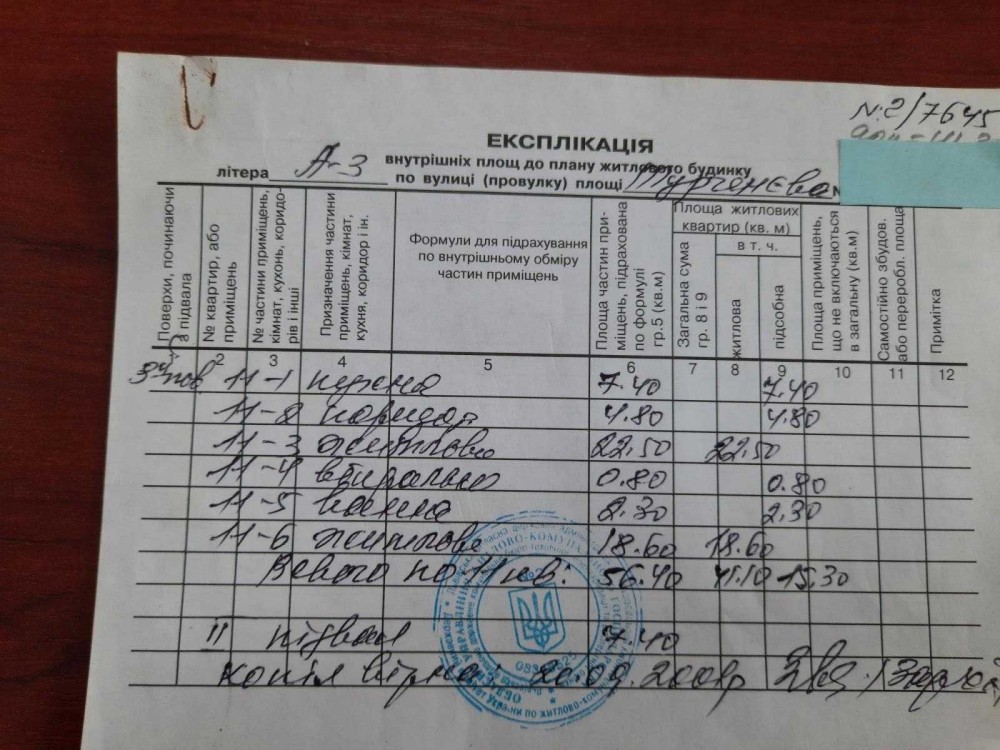 N:2/7645
ЕКСПЛІКАЦІЯ
внутрішніх площ до плану житлового будинку
літера А-3 по вулиці (провулку) площі Тургенєва
Поверхи, починаючи з підвала
№ квартир, або приміщень
№ частини приміщень, кімнат, кухонь, коридорів і інші
Призначення частини приміщень, кімнат, кухня, коридор і ін.
Формули для підрахування по внутрішньому обміру частин приміщень
Площа частин приміщень, підрахована по формулі гр.5 (кв.м)
Площа житлових квартир (кв. м)
Загальна сума гр. 8 і 9
в т. ч.
житлова
підсобна
Площа приміщень, що не включаються в загальну (кв.м)
Самостійно збудов. або переробл. площа
Примітка
2 3 4 5 6 7 8 9 10 11 12
3й пов. 11-1 кухня 7.40 7.40
11-2 коридор 4.80 4.80
11-3 житлова 22.50 22.50
11-4 вбиральня 0.80 0.80
11-5 ванна 2.30 2.30
11-6 житлова 18.60 18.60
Всього по 11 кв: 56.40 41.10 15.30
II підвал 7.40
копія вірна: 20.09.2001р